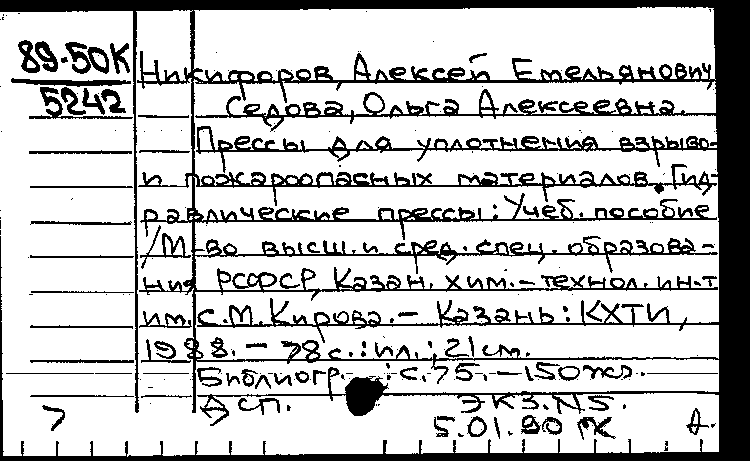 89-50К
5242
Никифоров, Алексей Емельянович,
Седова, Ольга Алексеевна.
Прессы для уплотнения взрыво-
и пожароопасных материалов. Гид-
равлические прессы: Учеб. пособие
/М-во высш. и сред. спец. образова-
ния РСФСР, Казан. хим.-технол. ин-т
им. С.М. Кирова. - Казань: КХТИ,
1988. - 78 с.: ил.; 21 см.
Библиогр.: с. 75. - 150 экз.
Д сп. ЭКЗ. N5.
5.01.90 ГК